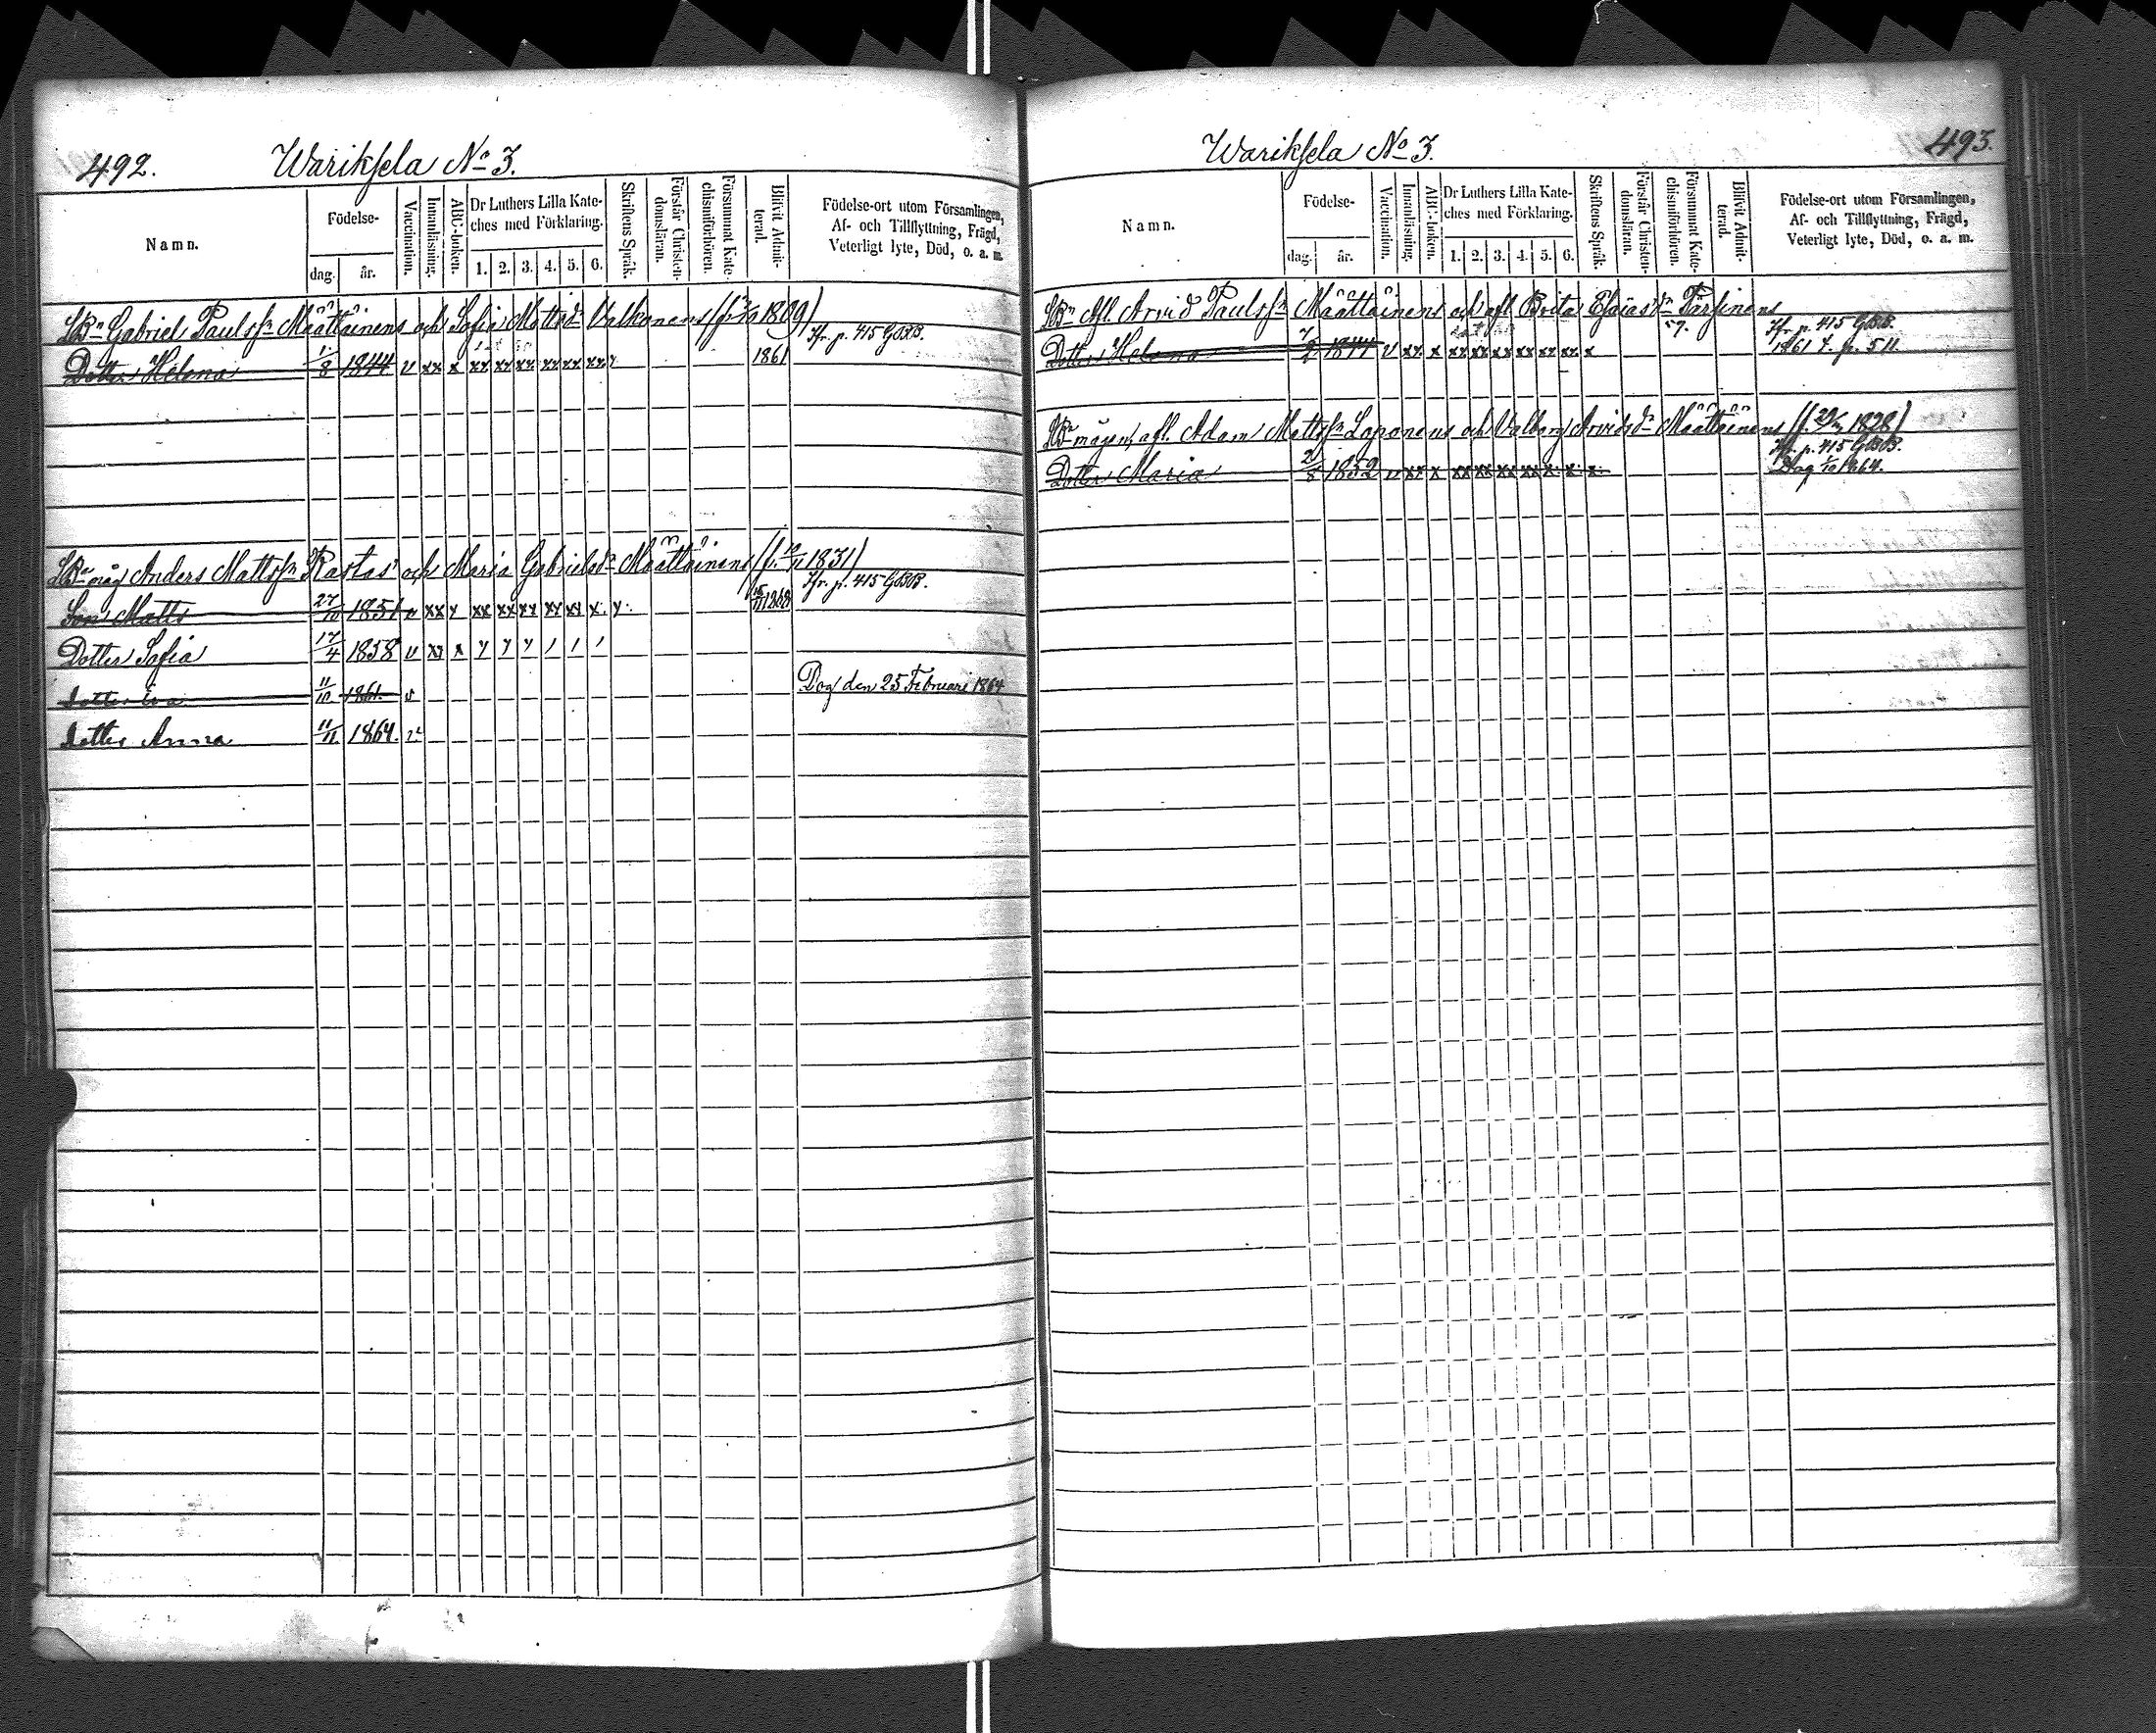 492.
Wariksela No 3.
Namn.
Födelse-
dag.
år.
Vaccination.
Innanläsning.
ABC-boken.
Dr Luthers Lilla Kate-
ches med Förklaring.
1. 2. 3. 4. 5. 6.
Skriftens Språk.
Förstår Christen-
domsläran.
Försummat Kate-
chismiförhören.
Blifvit Admit-
terad.
Födelse-ort utom Församlingen,
Af- och Tillflyttning, Frägd,
Veterligt lyte, Död, o. a. m.
Gabriel Paulssn Määttäinens och Sofia Mattsdr Valkonens 1809)
Jfr. p. 415 GBB.
Dotter Helena 1/8 1844 v xx x xx xx xx xx xx xx y 1861
måg Anders Mattssn Rastas och Maria Gabrielsdr Määttäinens 1831)
Jfr. p. 415 GBB.
Son Matts 27/10 1851 v xx y xx xx xx xx xx x. y.
Dotter Sofia 17/4 1858 v xx x y y y / / /
Dotter Eva 11/10 1861. v Dog den 25 Februari 1864
Dotter Anna 11/11 1864. v
493.
Wariksela No 3.
Namn.
Födelse-
dag.
år.
Vaccination.
Innanläsning.
ABC-boken.
Dr Luthers Lilla Kate-
ches med Förklaring.
1. 2. 3. 4. 5. 6.
Skriftens Språk.
Förstår Christen-
domsläran.
Försummat Kate-
chismiförhören.
Blifvit Admit-
terad.
Födelse-ort utom Församlingen,
Af- och Tillflyttning, Frägd,
Veterligt lyte, Död, o. a. m.
Afl. Arvid Paulssn Määttäinens och afl Brita Esaiasdr
Jfr. p. 415 GBB.
Dotter Helena 7/2 1844 v xx x xx xx xx xx xx xx x 1861 p. 511
mågen, afl. Adam Mattssn Laponens och Valborg Arvidsdr Määttäinens 1828)
Jfr. p. 415 GBB.
Dotter Maria 2/8 1852 v xx x xx xx xx xx x. x. x. Dog 1864.